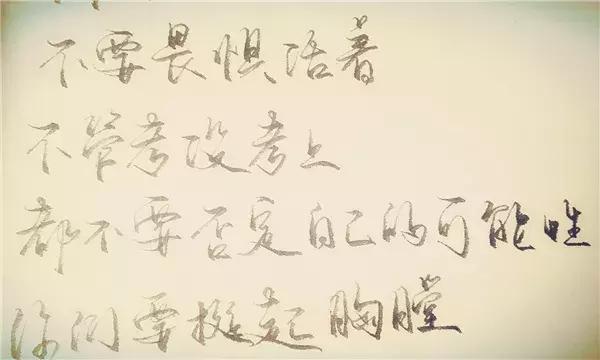 不要畏惧活着
不管考没考上
都不要否定自己的可能性
你们要挺起胸膛